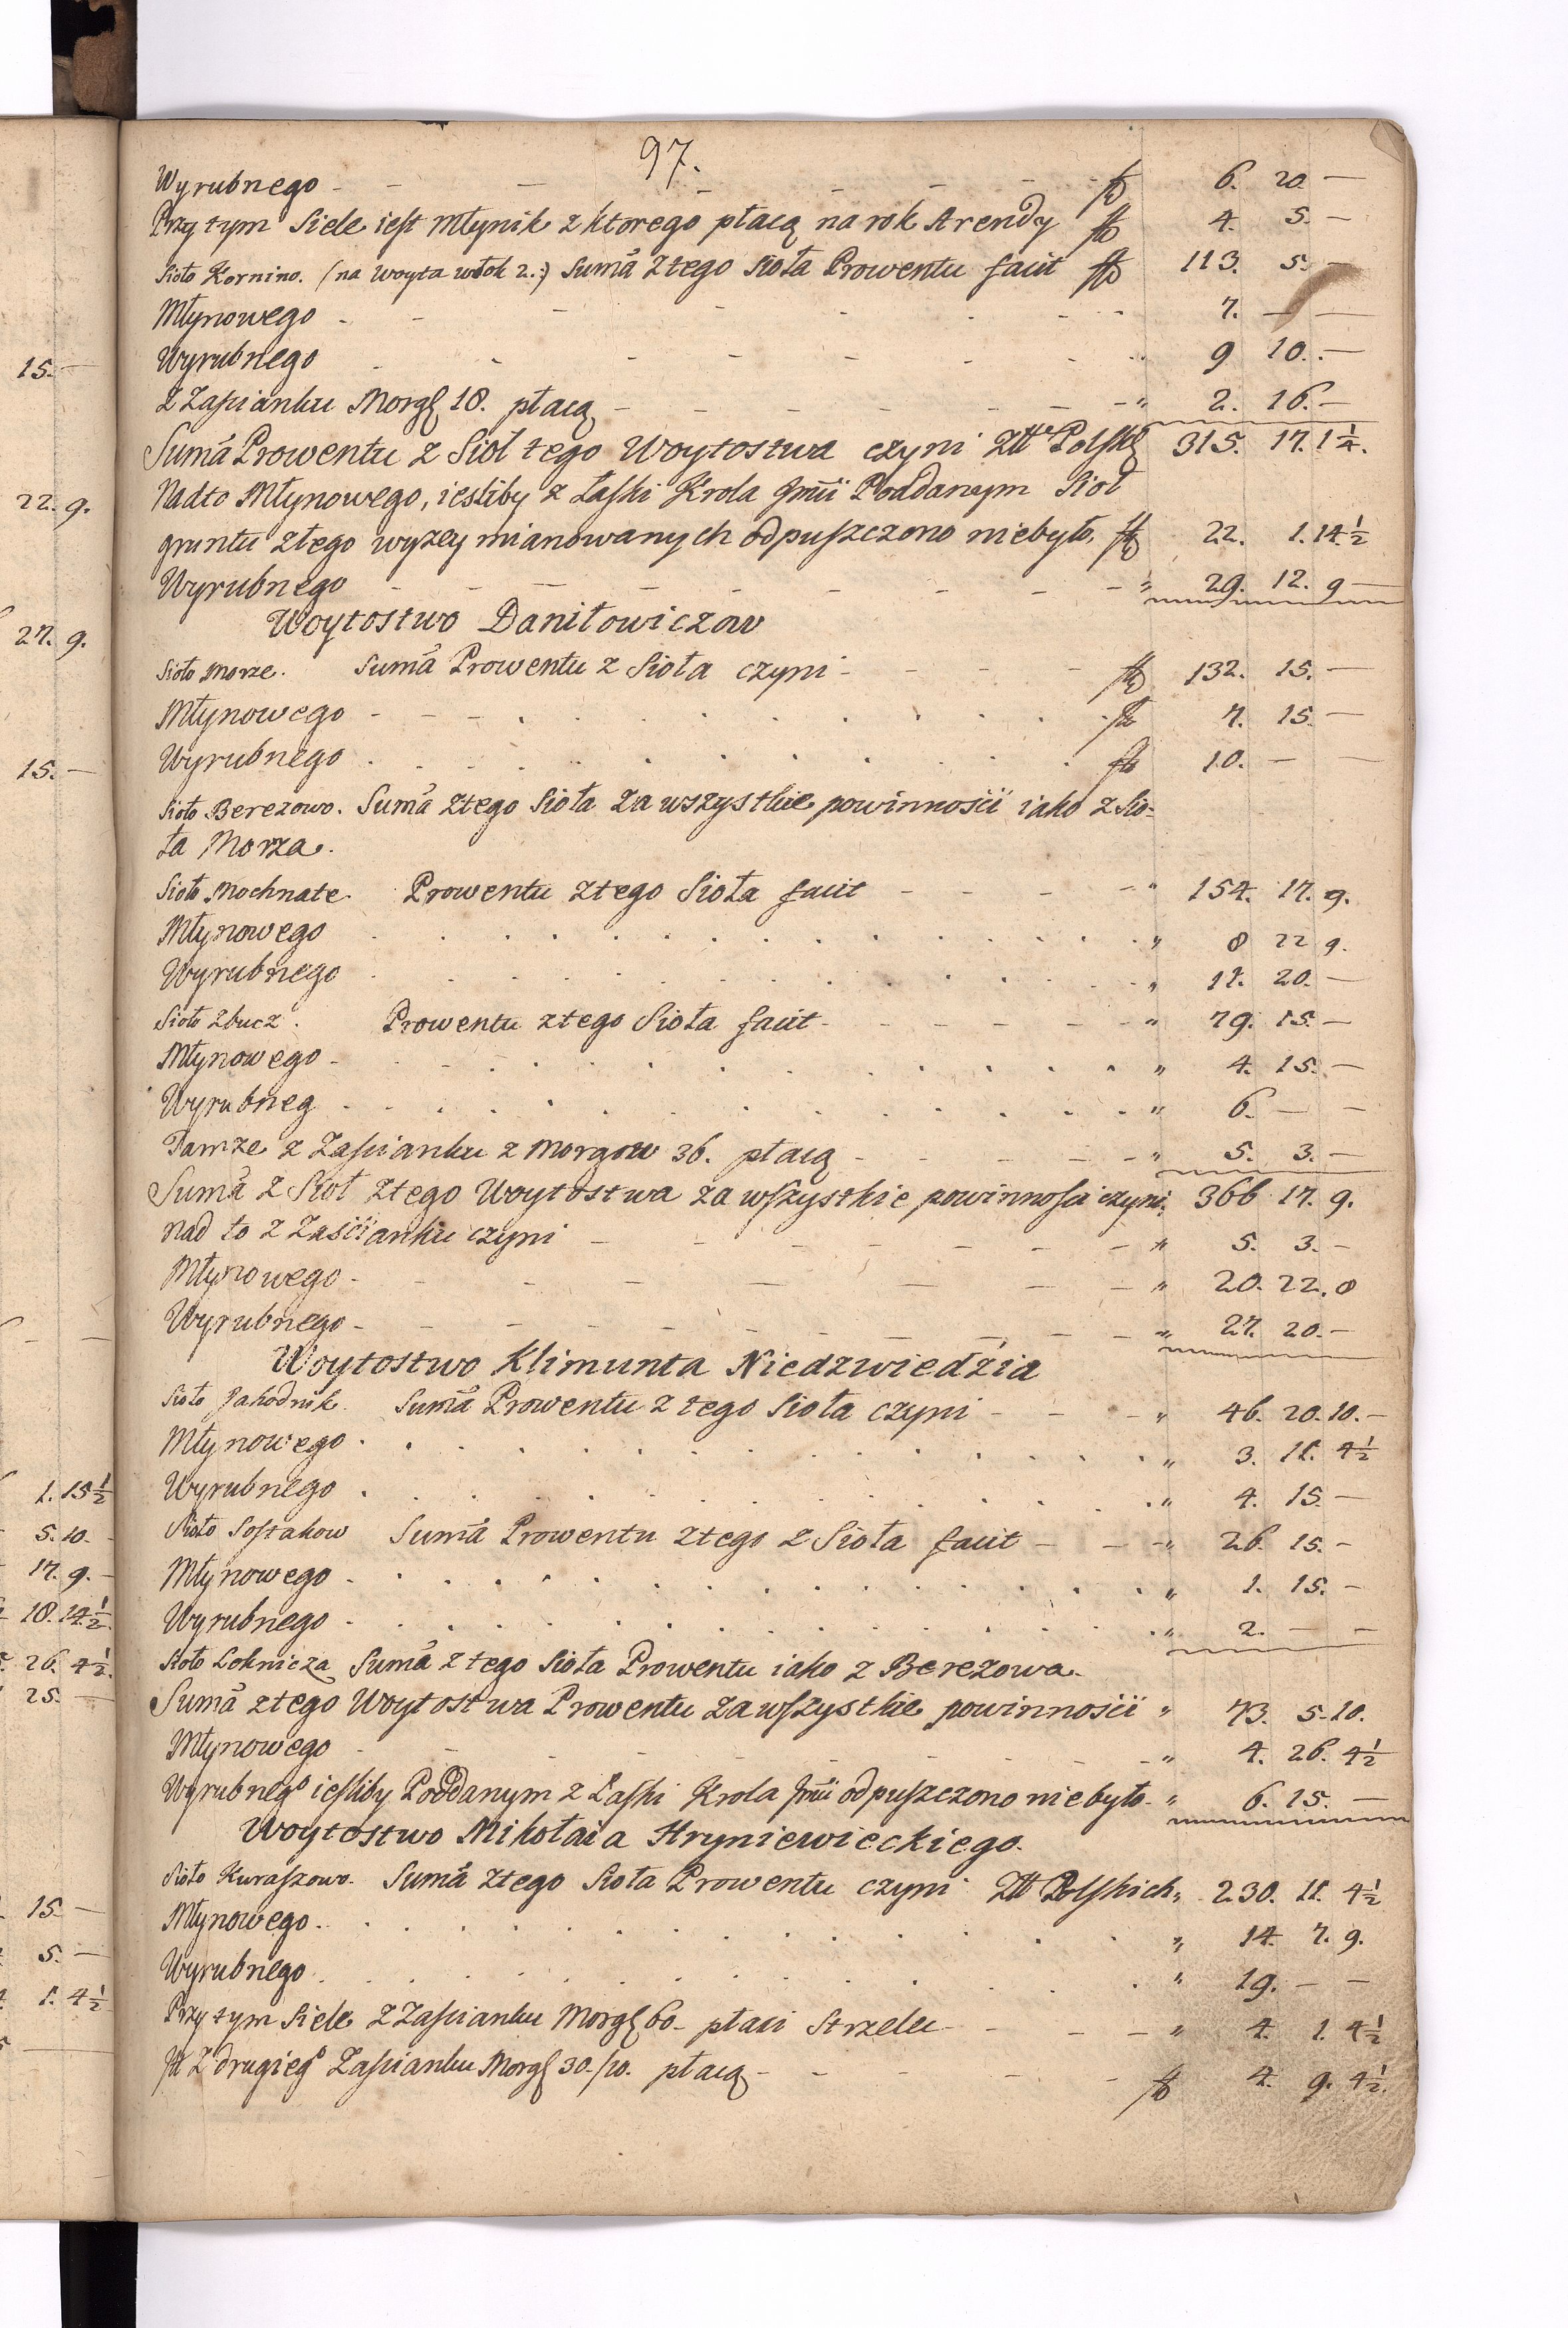 97.
Wyrubnego - - - - - - - fl 6. 20. —
Przy tym Siele iest Młynik z ktorego płacą na rok Arendy fl 4. 5. —
Sioło Kornino. (na Woyta włok 2.:) Sumā z tego Sioła Prowentu facit fl 113. 5. —
Młynowego - - - - - - 7. — —
Wyrubnego - - - - - - " 9 10. —
Z Zaścianku Morgę 18. płacą - - - - - " 2. 16. —
Sumā Prowentu z Sioł tego Woytostwa czyni Złł Polskę 315. 17. 1 1/4.
Nadto Młynowego, iesliby z Łaski Krola Jmīi Poddanym Sioł
gruntu złego wyzey mianowanych odpuszczono niebyło, fl 22. 1. 14 1/2
Wyrubnego - - - - - - - " 29. 12. 9 —
Woytostwo Daniłowiczow
Sioło Morze. Sumā Prowentu z Sioła czyni - - - fl 132. 15. —
Młynowego - - - . . . . . . fl 7. 15. —
Wyrubnego . . . . . . . . fl 10. — —
Sioło Berezowo. Sumā z tego Sioła za wszystkie powinnoscii iako z Sio-
ła Morza.
Sioło Mochnate. Prowentu z tego Sioła facit - - - - " 154. 17. 9.
Młynowego . . . . . . . . " 8 22 9.
Wyrubnego . . . . . . . . " 11. 20. —
Sioło Zbucz. Prowentu z tego Sioła facit - - - - - " 79. 15. —
Młynowego - . . . . . . . " 4. 15. —
Wyrubneg . . . . . . . . " 6. — —
Tamze z Zaścianku z Morgow 36. płacą - - - - - " 5. 3. —
Sumā z Sioł z tego Woytostwa za wszystkie powinnosci czyni. 366 17. 9.
nad to z Zaściianku czyni - - - - - - " 5. 3. —
Młynowego - - - - - - - " 20. 22. 8
Wyrubnego - - - - - - - " 27. 20. —
Woytostwo Klimunta Niedzwiedzia
Sioło Jakodnik. Sumā Prowentu z tego Sioła czyni - - - " 46. 20. 10. —
Młynowego . . . . . . . . " 3. 11. 4 1/2
Wyrubnego . . . . . . . . " 4. 15. —
Sioło Sostakow Sumā Prowentu z tego z Sioła facit - - - " 26. 15. —
Młynowego . . . . . . . . " 1. 15. —
Wyrubnego . . . . . . . . " 2. — —
Sioło Loknicza Sumā z tego Sioła Prowentu iako z Berezowa.
Sumā z tego Woytostwa Prowentu za wszystkie powinnoscii " 73. 5. 10.
Młynowego - - - - - - - " 4. 26. 4 1/2
Wyrubnego iesliby Poddanym z Łaski Krola Jmīi odpuszczono niebyło. " 6. 15. —
Woytostwo Mikołaia Hryniewieckiego.
Sioło Kuraszowo. Sumā z tego Sioła Prowentu czyni Złł Polskich " 230. 11. 4 1/2
Młynowego . . . . . . . . " 14. 7. 9.
Wyrubnego . . . . . . . . " 19. — —
Przy tym Siele z Zaścianku Morgę 60. płaci Strzelec - - - " 4. 1. 4 1/2
z drugiego Zaścianku Morgę 30./10. płacą - - - - fl 4. 9. 4 1/2.
15. —
22. 9.
27. 9.
15. —
1. 15 1/2
5. 10. -
17. 9. -
18. 14 1/2
26. 4 1/2.
25. —
15. —
5. —
1. 4 1/2